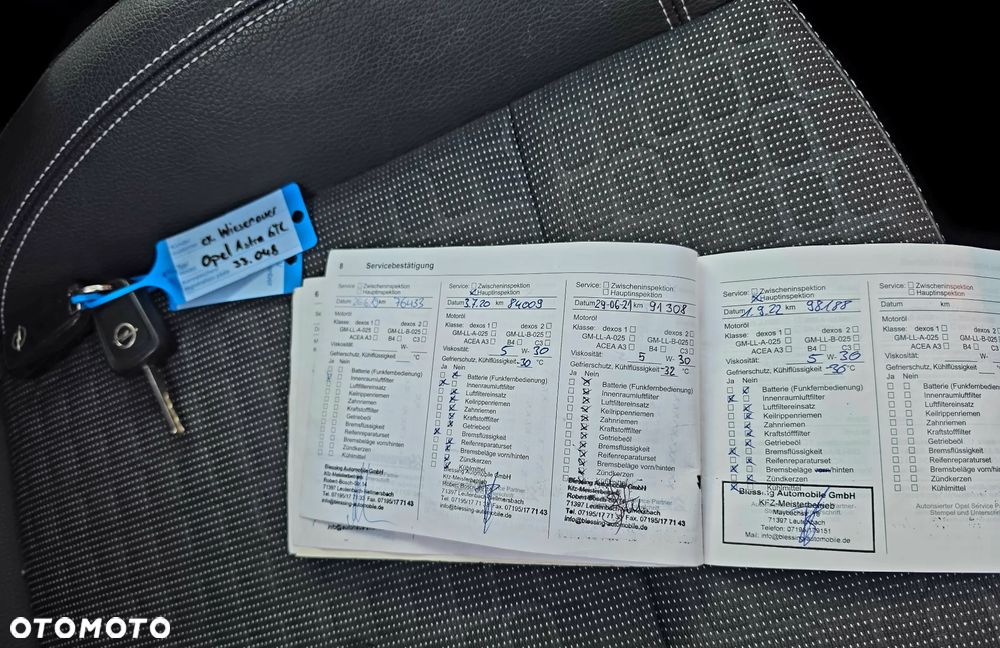 ex Wiesenauer
Opel Astra GTC
33.048
8 Servicebestätigung
6
Service: Zwischeninspektion
Hauptinspektion
Datum km 76433
Motoröl
Klasse: dexos 1 dexos 2
GM-LL-A-025 GM-LL-B-025
ACEA A3 B4 C3
Viskosität: W-
Gefrierschutz, Kühlflüssigkeit °C
Ja Nein
Batterie (Funkfernbedienung)
Innenraumluftfilter
Luftfiltereinsatz
Keilrippenriemen
Zahnriemen
Kraftstofffilter
Getriebeöl
Bremsflüssigkeit
Reifenreparaturset
Bremsbeläge vorn/hinten
Zündkerzen
Kühlmittel
Blessing Automobile GmbH
Kfz-Meisterbetrieb
Robert-Bosch-Str. 14
71397 Leutenbach-Nellmersbach
Tel. 07195/17 71 33 Fax. 07195/17 71 43
info@blessing-automobile.de
Service: Zwischeninspektion
Hauptinspektion
Datum 3.7.20 km 84009
Motoröl
Klasse: dexos 1 dexos 2
GM-LL-A-025 GM-LL-B-025
ACEA A3 B4 C3
Viskosität: 5 W- 30
Gefrierschutz, Kühlflüssigkeit -30 °C
Ja Nein
Batterie (Funkfernbedienung)
Innenraumluftfilter
Luftfiltereinsatz
Keilrippenriemen
Zahnriemen
Kraftstofffilter
Getriebeöl
Bremsflüssigkeit
Reifenreparaturset
Bremsbeläge vorn/hinten
Zündkerzen
Kühlmittel
Blessing Automobile GmbH
Kfz-Meisterbetrieb
71397 Leutenbach-Nellmersbach
Tel. 07195/17 71 33 Fax. 07195/17 71 43
info@blessing-automobile.de
Service: Zwischeninspektion
Hauptinspektion
Datum 29-06-21 km 91 308
Motoröl
Klasse: dexos 1 dexos 2
GM-LL-A-025 GM-LL-B-025
ACEA A3 B4 C3
Viskosität: 5 W- 30
Gefrierschutz, Kühlflüssigkeit -32 °C
Ja Nein
Batterie (Funkfernbedienung)
Innenraumluftfilter
Luftfiltereinsatz
Keilrippenriemen
Zahnriemen
Kraftstofffilter
Getriebeöl
Bremsflüssigkeit
Reifenreparaturset
Bremsbeläge vorn/hinten
Zündkerzen
Kühlmittel
Blessing Automobile GmbH
Kfz-Meisterbetrieb
71397 Leutenbach-Nellmersbach
Tel. 07195/17 71 33 Fax. 07195/17 71 43
info@blessing-automobile.de
Service: Zwischeninspektion
Hauptinspektion
Datum 1.9.22 km 98188
Motoröl
Klasse: dexos 1 dexos 2
GM-LL-A-025 GM-LL-B-025
ACEA A3 B4 C3
Viskosität: 5 W- 30
Gefrierschutz, Kühlflüssigkeit °C
Ja Nein
Batterie (Funkfernbedienung)
Innenraumluftfilter
Luftfiltereinsatz
Keilrippenriemen
Zahnriemen
Kraftstofffilter
Getriebeöl
Bremsflüssigkeit
Reifenreparaturset
Bremsbeläge vorn/hinten
Zündkerzen
Kühlmittel
Blessing Automobile GmbH
KFZ-Meisterbetrieb
71397 Leutenbach
Mail: info@blessing-automobile.de
Service: Zwischeninspektion
Hauptinspektion
Datum km
Motoröl
Klasse: dexos 1 dexos 2
GM-LL-A-025 GM-LL-B-025
ACEA A3 B4 C3
Viskosität: W-
Gefrierschutz, Kühlflüssigkeit °C
Ja Nein
Batterie (Funkfernbedienung)
Innenraumluftfilter
Luftfiltereinsatz
Keilrippenriemen
Zahnriemen
Kraftstofffilter
Getriebeöl
Bremsflüssigkeit
Reifenreparaturset
Bremsbeläge vorn/hinten
Zündkerzen
Kühlmittel
Autorisierter Opel Service P
Stempel und Unterschrift
OTOMOTO